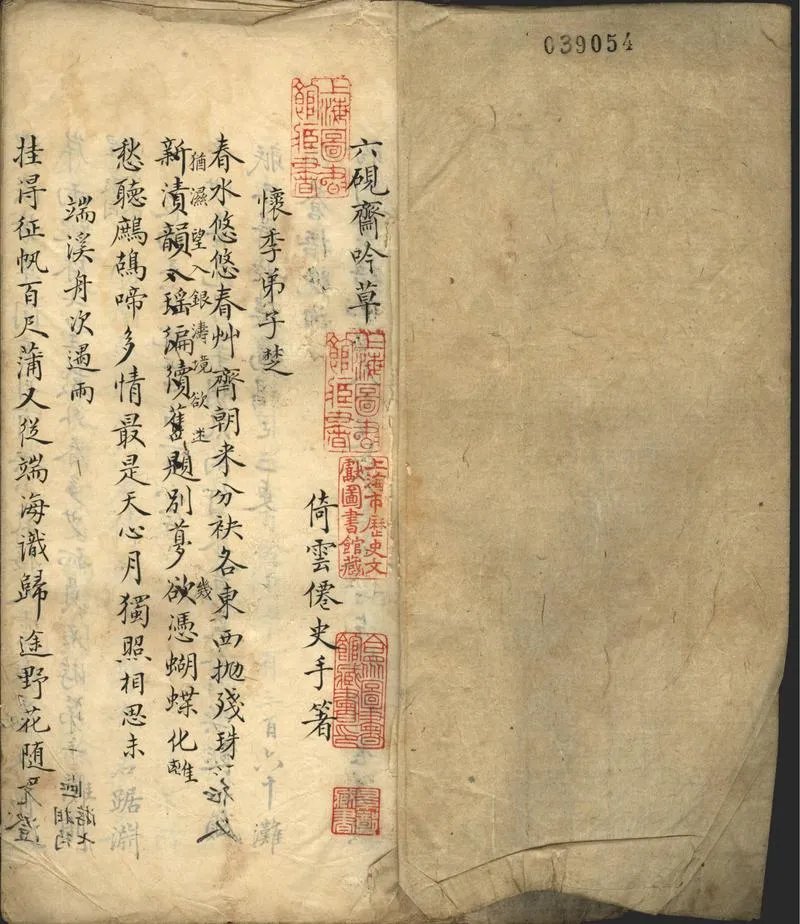 039054
六硯齋吟草
上海圖書館藏書
上海圖書館藏書
上海市歷史文獻圖書館藏
合眾圖書館藏書之印
倚雲僊史手著
懷季弟子楚
春水悠悠春艸齊朝来分袂各東西拋殘珠
猶濕望入銀濤境欲迷
新漬韻入瑶編續舊題別夢欲憑蝴蝶化雖
幾
愁聽鷓鴣啼多情最是天心月獨照相思未
端溪舟次遇雨
挂得征帆百尺蒲又从端海識歸途野花随